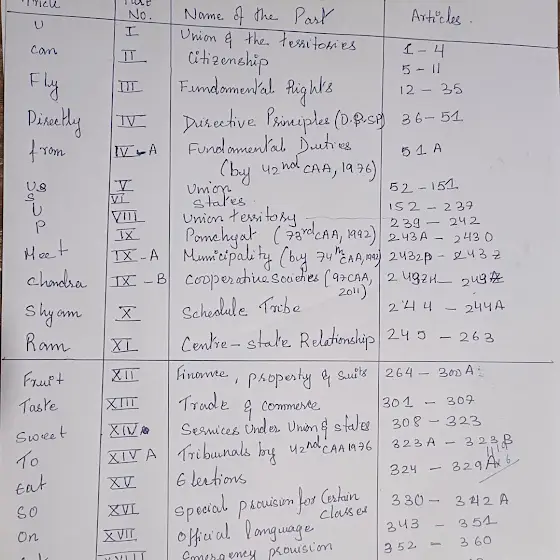 Trick Part No. Name of the Part Articles.
U I Union & the territories 1 - 4
Can II Citizenship 5 - 11
Fly III Fundamental Right's 12 - 35
Directly IV Directive Principles (D.P.SP) 36 - 51
from IV-A Fundamental Duties (by 42nd CAA, 1976) 51 A
US V Union 52 - 151
S VI States. 152 - 237
U VIII Union territosy 239 - 242
P IX Panchyat (73rd CAA, 1992) 243A - 243O
Meet IX-A Municipality (by 74th CAA, 1992) 243ZP - 243Z
Chandra IX-B Cooperative Societies (97CAA, 2011) 243ZH - 243Z
Shyam X Schedule Tribe 244 - 244A
Ram XI Centre - state Relationship 245 - 263
Fruit XII Finance, property & suits 264 - 300A
Taste XIII Trade & commerce 301 - 307
Sweet XIV Services Under Union & states 308 - 323
To XIV A Tribunals by 42nd CAA 1976 323A - 323B
Eat XV Elections 324 - 329A
SO XVI Special provision for Certain classes 330 - 342 A
On XVII Official language 343 - 351
XVIII Emergency provision 352 - 360